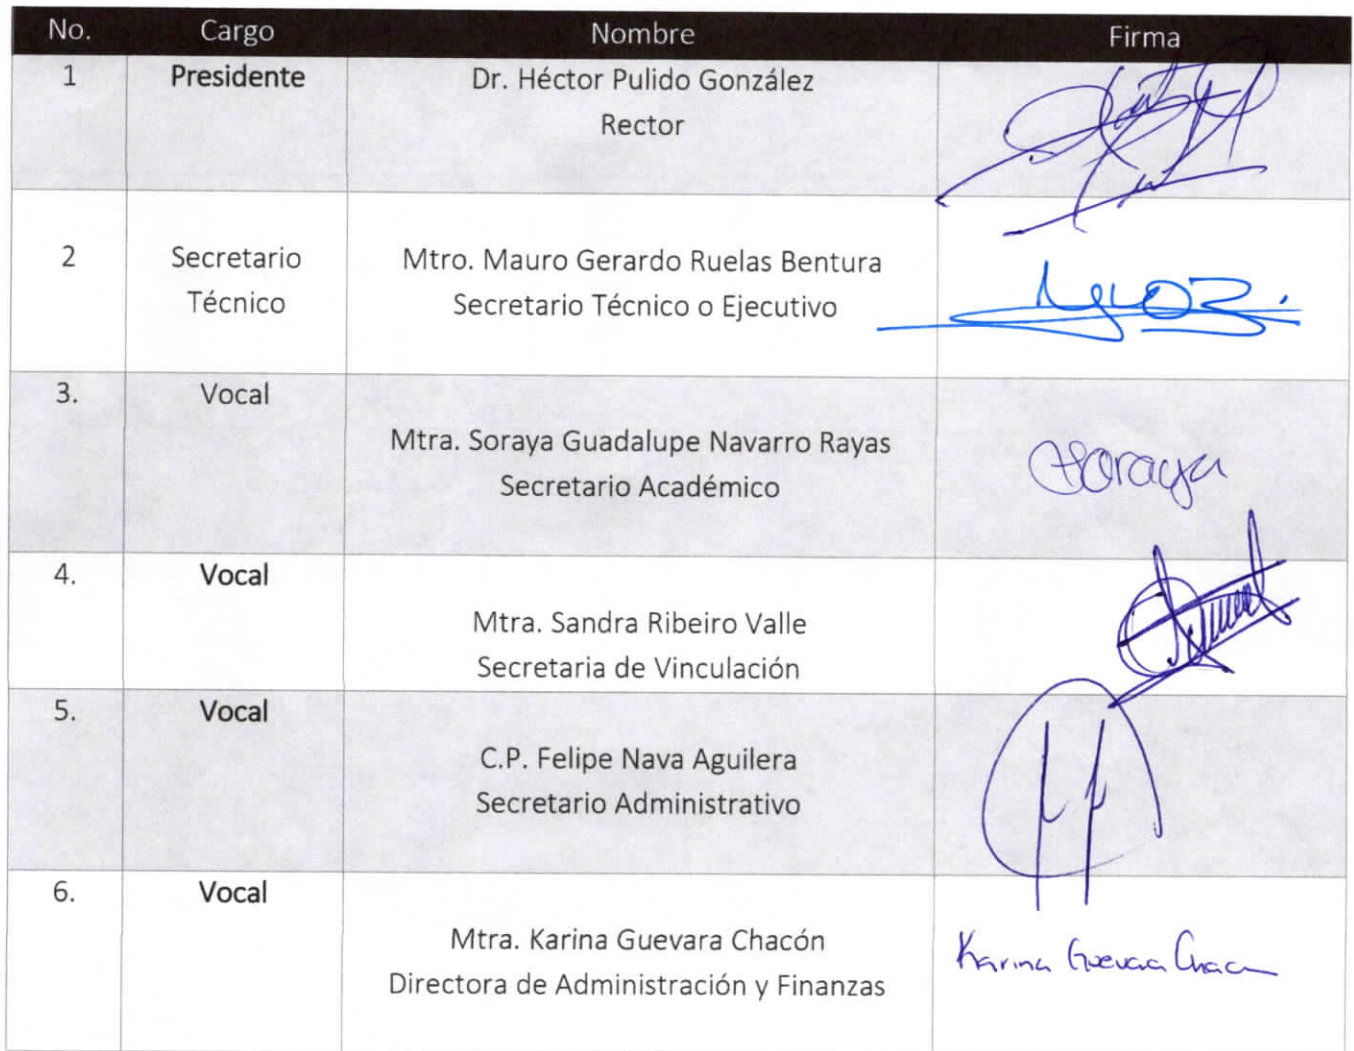 No. Cargo Nombre Firma
1 Presidente Dr. Héctor Pulido González
Rector
2 Secretario Mtro. Mauro Gerardo Ruelas Bentura
Técnico Secretario Técnico o Ejecutivo
3. Vocal
Mtra. Soraya Guadalupe Navarro Rayas
Secretario Académico
Soraya
4. Vocal
Mtra. Sandra Ribeiro Valle
Secretaria de Vinculación
5. Vocal
C.P. Felipe Nava Aguilera
Secretario Administrativo
6. Vocal
Mtra. Karina Guevara Chacón
Directora de Administración y Finanzas
Karina Guevara Chacon